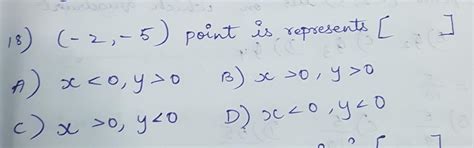 18) (-2,-5) point is represents [ ]
A) x<0, y>0 B) x>0, y>0
C) x>0, y<0 D) x<0, y<0